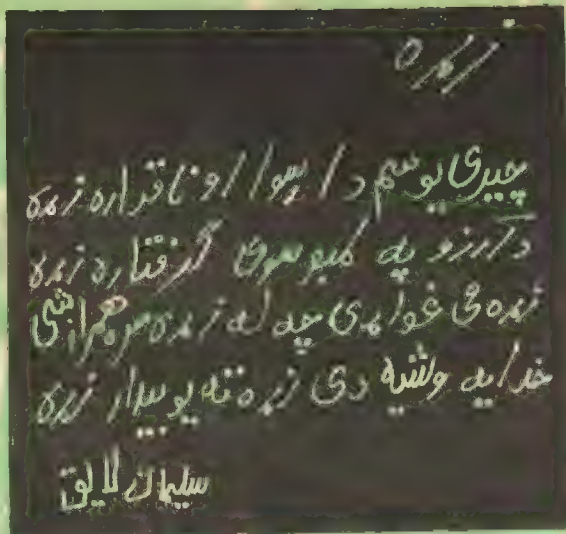 زړه
چيرې يو سم د ا رسوا او ناقراره زړه
د آرزو په کمبوسوی ګرفتاره زړه
زړه مې غواړې چه له زړه سره همراز شي
خدايه وشيه دې زړه ته يو بيدار زړه
سليمان لايق